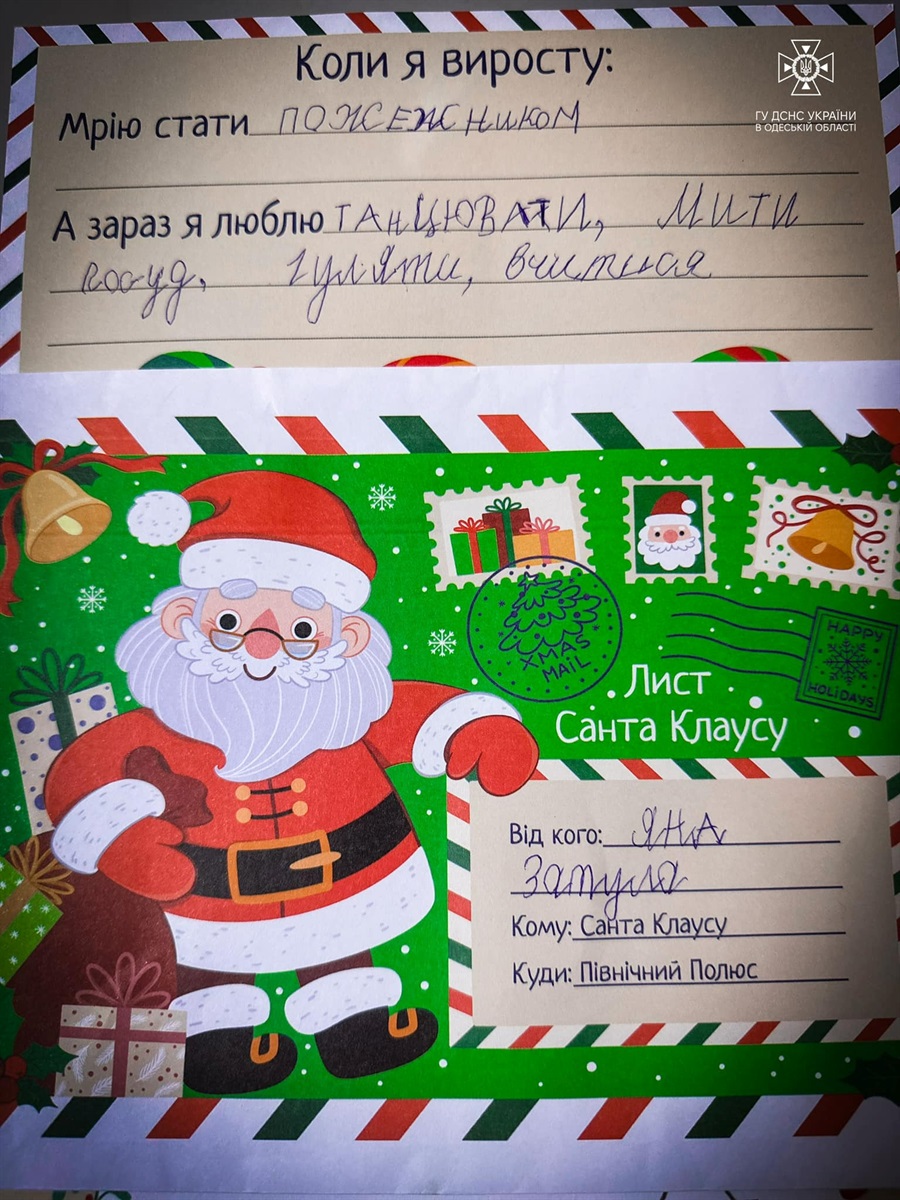 Коли я виросту:
ГУ ДСНС УКРАЇНИ
В ОДЕСЬКІЙ ОБЛАСТІ
Мрію стати ПОЖЕЖНИКОМ
А зараз я люблю ТАНЦЮВАТИ, Мити
посуд, гуляти,
XMAS
MAIL
HAPPY
HOLIDAYS
Лист
Санта Клаусу
Від кого: ЯНА
Запула
Кому: Санта Клаусу
Куди: Північний Полюс